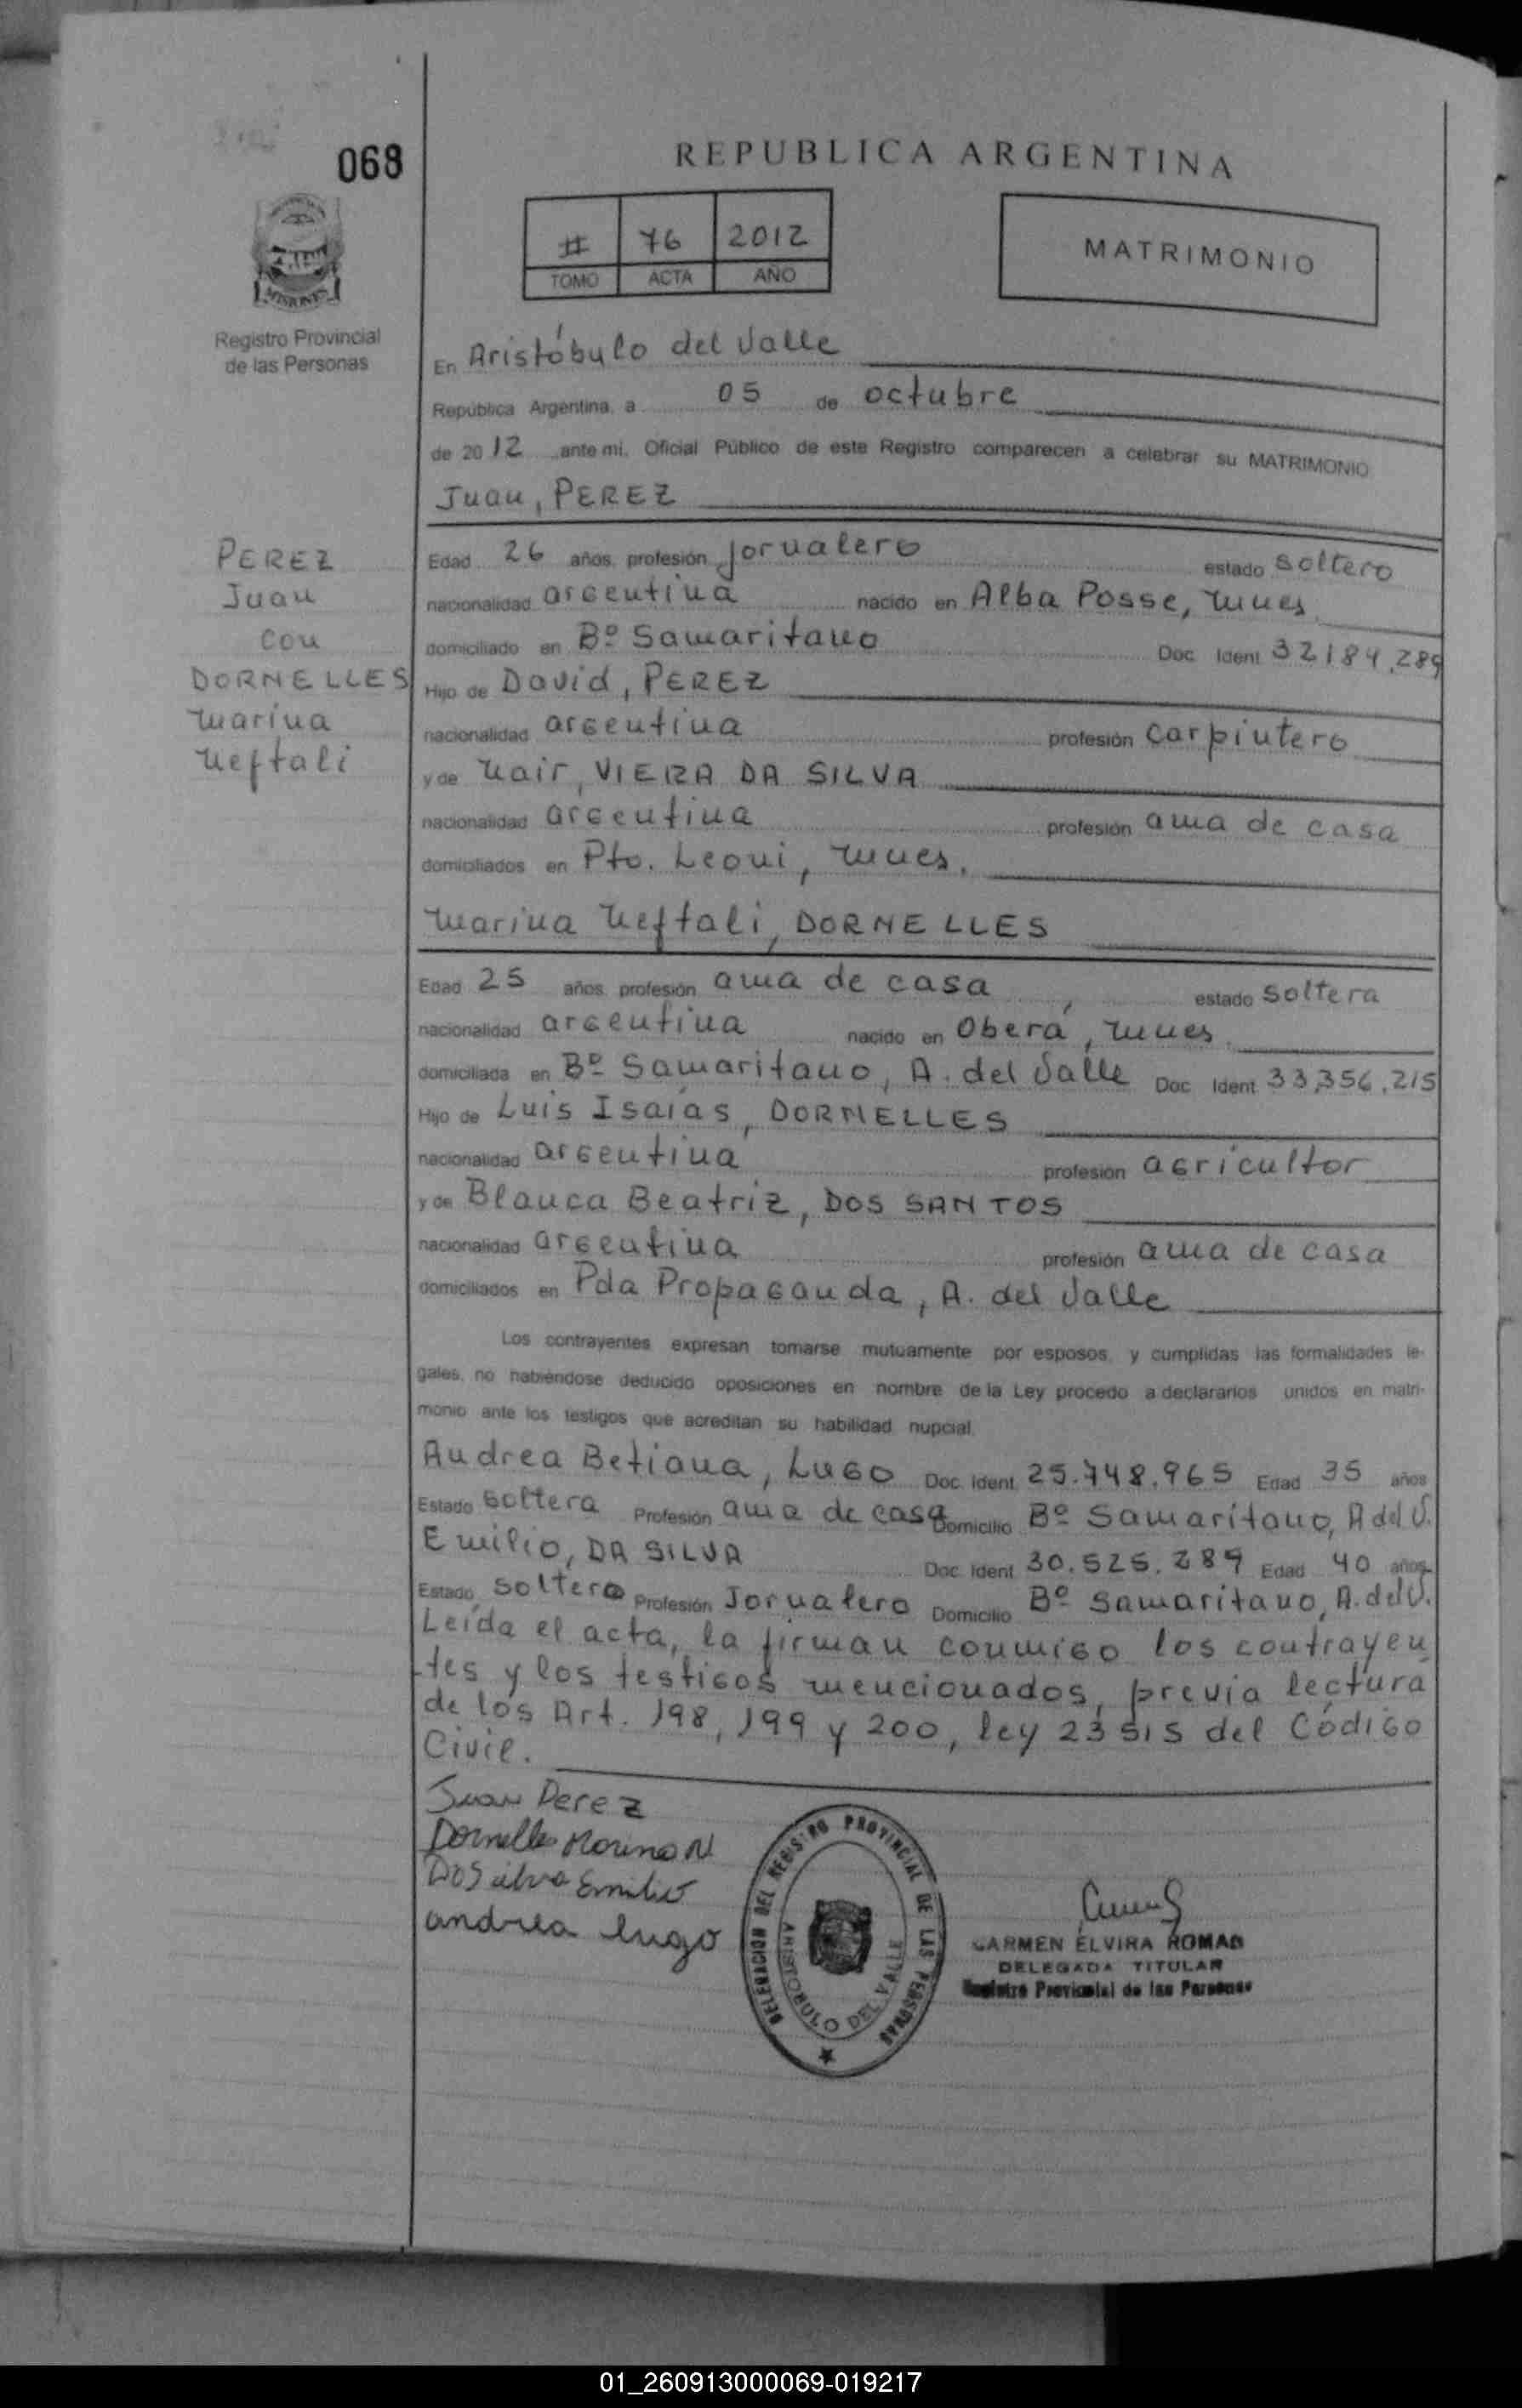 068
REPUBLICA ARGENTINA
II 76 2012
TOMO ACTA AÑO
MATRIMONIO
MISIONES
Registro Provincial
de las Personas
En Aristóbulo del Valle
República Argentina, a 05 de octubre
de 2012 ante mi, Oficial Público de este Registro comparecen a celebrar su MATRIMONIO
Juan, PEREZ
PEREZ
Juan
con
DORNELLES
Marina
Neftali
Edad 26 años profesión jornalero estado soltero
nacionalidad argentina nacido en Alba Posse, Mnes
domiciliado en Bº Samaritano Doc. Ident 32184.289
Hijo de David, PEREZ
nacionalidad argentina profesión carpintero
y de Nair, VIERA DA SILVA
nacionalidad argentina profesión ama de casa
domiciliados en Pto. Leoni, Mnes.
Marina Neftali, DORNELLES
Edad 25 años profesión ama de casa, estado soltera
nacionalidad argentina nacido en Oberá, Mnes
domiciliada en Bº Samaritano, A. del Valle Doc Ident 33.356.215
Hijo de Luis Isaías, DORNELLES
nacionalidad argentina profesión agricultor
y de Blanca Beatriz, DOS SANTOS
nacionalidad argentina profesión ama de casa
domiciliados en Pda Propaganda, A. del Valle
Los contrayentes expresan tomarse mutuamente por esposos, y cumplidas las formalidades le-
gales, no habiéndose deducido oposiciones en nombre de la Ley procedo a declararlos unidos en matri-
monio ante los testigos que acreditan su habilidad nupcial
Andrea Betiana, LUGO Doc. Ident 25.748.965 Edad 35 años
Estado soltera Profesión ama de casa Domicilio Bº Samaritano, A del V.
Emilio, DA SILVA Doc. Ident 30.525.289 Edad 40 años
Estado soltero Profesión Jornalero Domicilio Bº Samaritano, A. del V.
Leída el acta, la firman conmigo los contrayen
tes y los testigos mencionados, previa lectura
de los Art. 198, 199 y 200, ley 23515 del Código
Civil.
Juan Perez
Dornelles Marina N
Da Silva Emilio
andrea lugo
DELEGACION DEL REGISTRO PROVINCIAL DE LAS PERSONAS
ARISTOBULO DEL VALLE
CARMEN ELVIRA ROMAN
DELEGADA TITULAR
Registro Provincial de las Personas
01_260913000069-019217